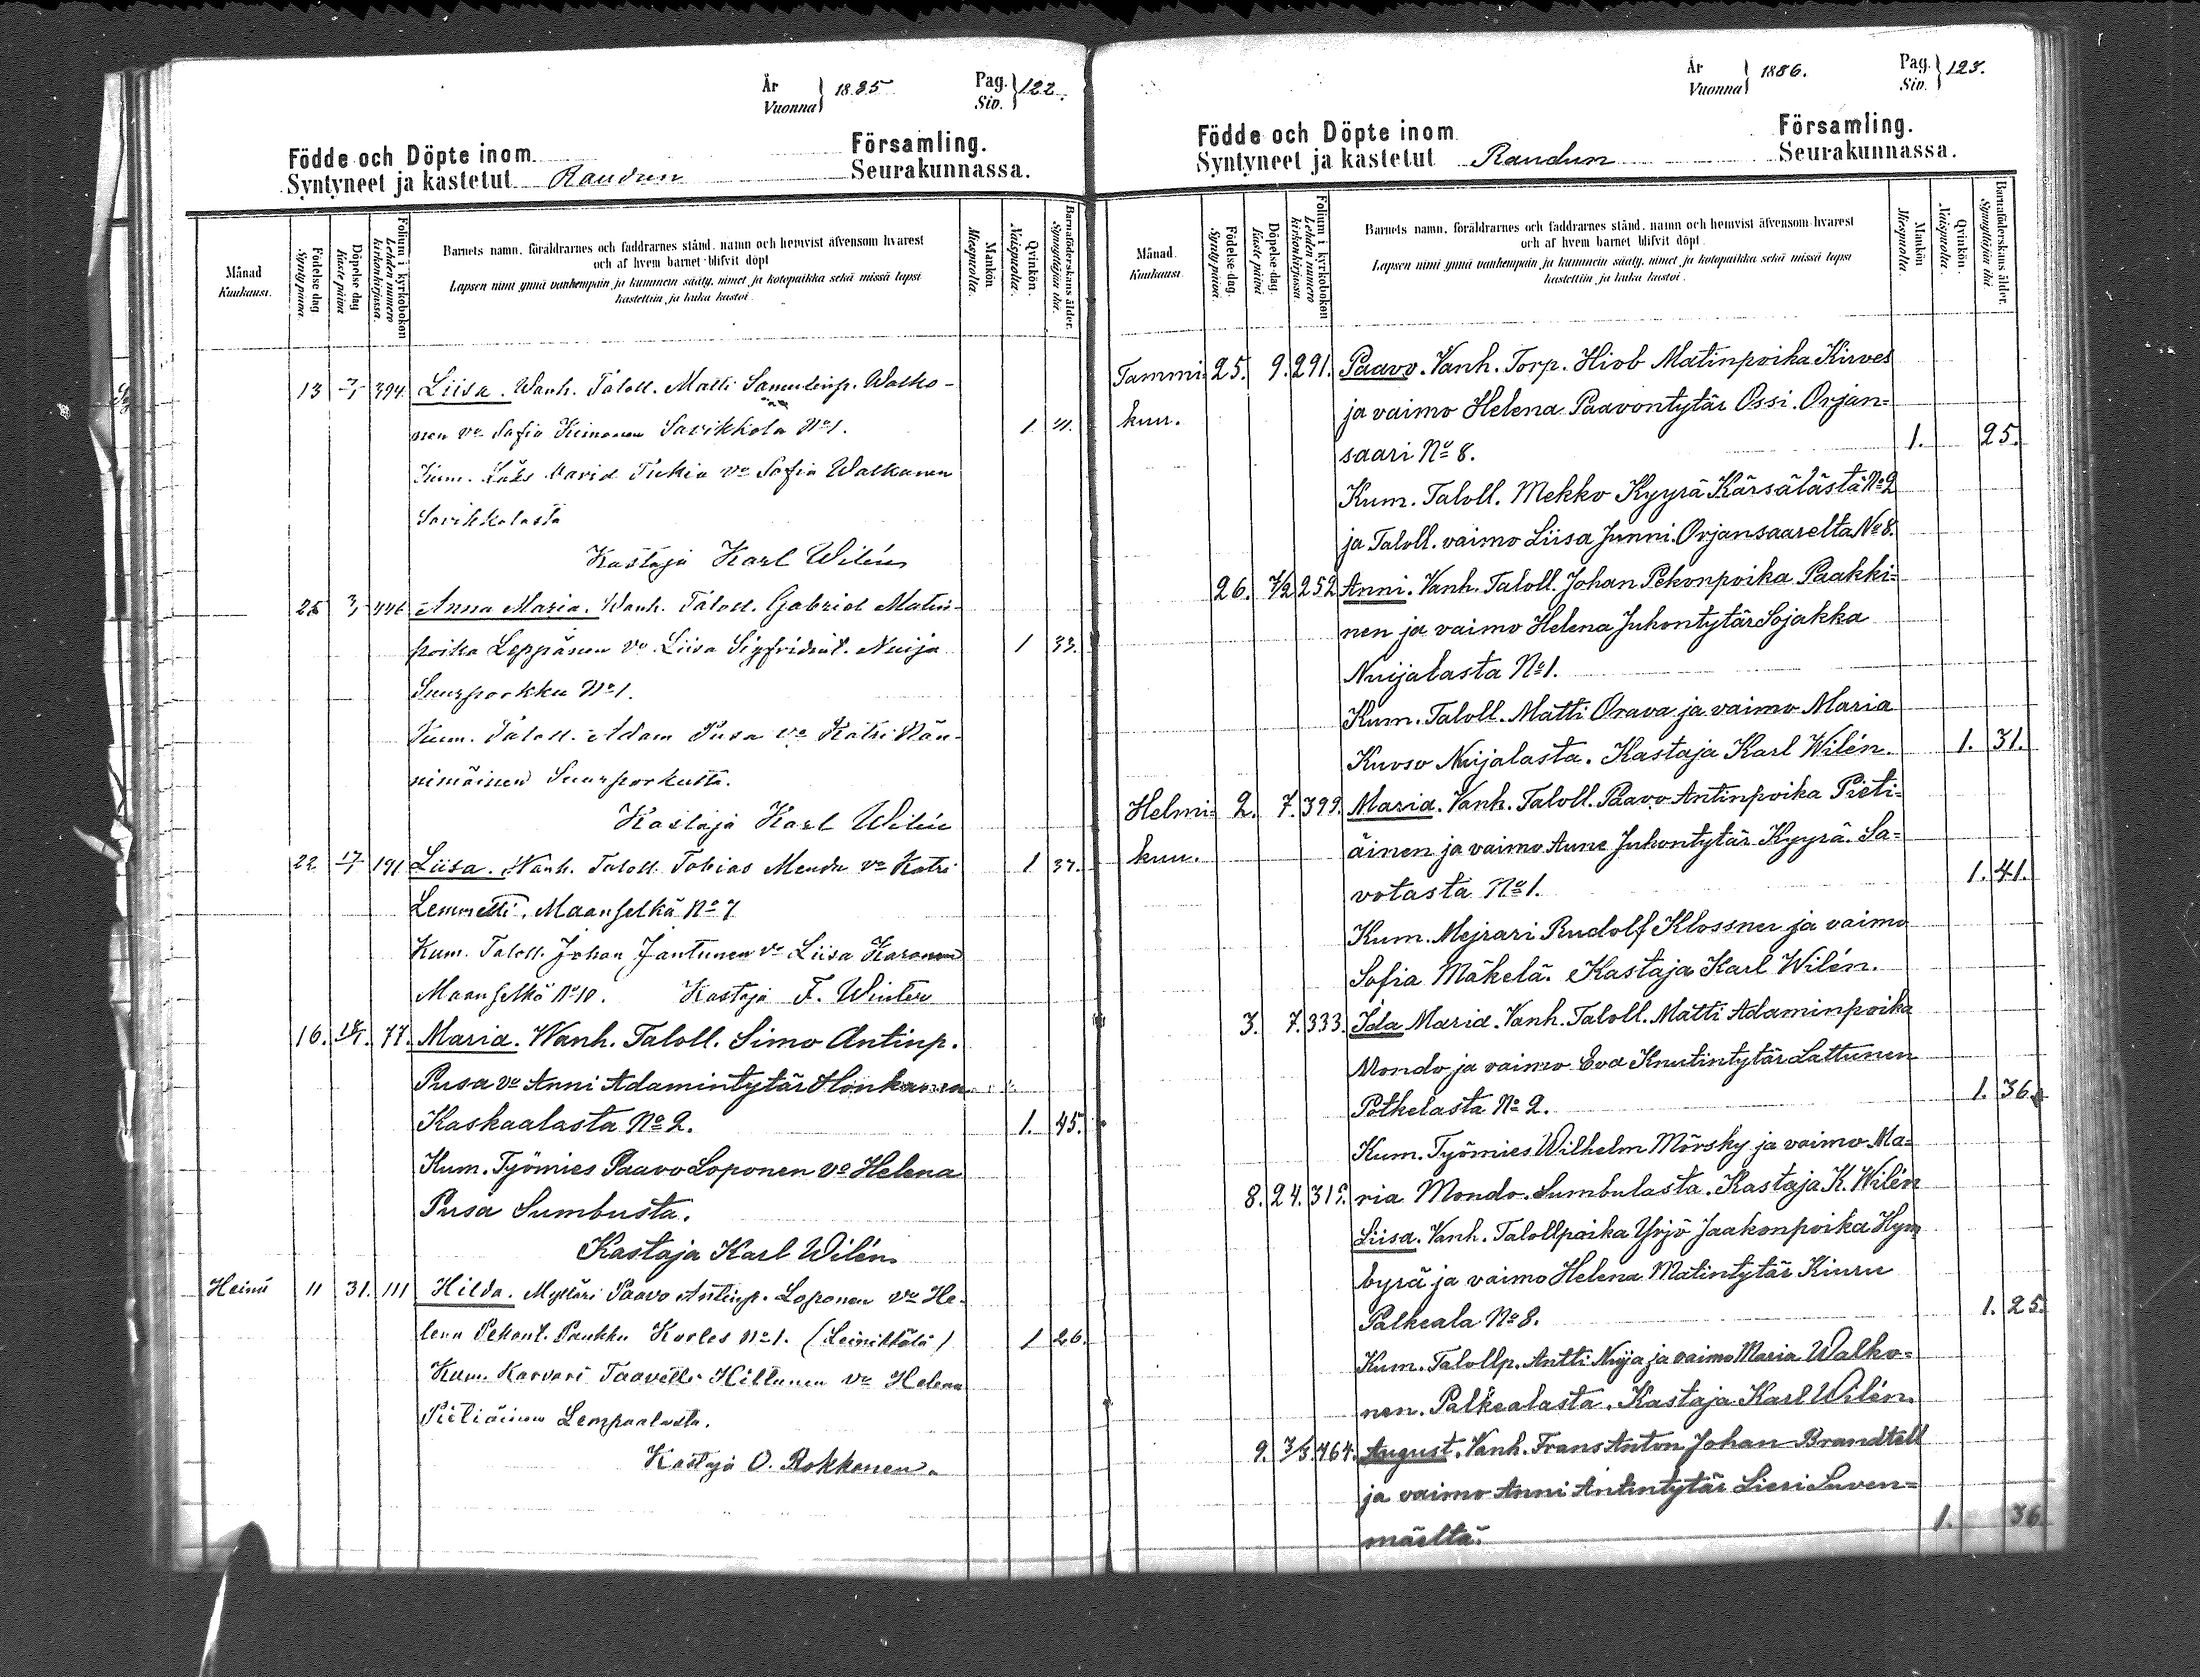 År
Vuonna } 1885 Pag.
Siv. } 122.
Födde och Döpte inom Församling.
Syntyneet ja kastetut Raudun Seurakunnassa.
Månad
Kuukausi.
Födelse dag
Synty päivä.
Döpelse dag
Kaste päivä
Folium i kyrkobokon
Lehden numero
kirkonkirjassa.
Barnets namn, föräldrarnes och faddrarnes stånd, namn och hemvist äfvensom hvarest
och af hvem barnet blifvit döpt
Lapsen nimi ynnä vanhempain ja kummein sääty, nimet ja kotopaikka sekä missä lapsi
kastettiin ja kuka kastoi.
Mankön
Miespuolia.
Qvinkön.
Naispuolia.
Barnaföderskans ålder.
Synnyttäjän ikä.
13 394 Liisa. Wanh. Taloll. Matti Samulinp. Walko-
nen vo Sofia Kiimonen Savikkola No1. 1
Kum. David Tiekia vo Sofia Walkonen
Savikkolasta
Kastaja Karl Wilén
25 446 Anna Maria. Wanh. Taloll. Gabriel Matin-
poika Leppänen vo Liisa Sigfridint. Nuija 1 33.
Suurporkku No1.
Kum. Taloll. Adam Pusa vo Katri Nän-
nimäinen Suurporkusta.
Kastaja Karl Wilén
22 191 Liisa. Wanh. Taloll. Tobias Mendu vo Katri 1 37.
Lemmetti, Maanselkä No 7
Kum. Taloll. Johan Jantunen vo Liisa Karonen
Maanselkä No10. Kastaja F. Winter
16. 77. Maria. Wanh. Taloll. Simo Antinp.
Pusa vo Anni Adamintytär Honkanen
Kaskaalasta No 2. 1. 45.
Kum. Työmies Paavo Loponen vo Helena
Pusa Sumbusta.
Kastaja Karl Wilén.
Heinä 11 31. 111 Hilda. Mylläri Paavo Antinp. Loponen vo He-
lena Pekont. Paukku Korles No1. (Leinikkälä) 1 26.
Kum. Karvari Taavetti Hiltunen vo Helena
Pietiäinen Lempaalasta.
Kastaja O. Rokkanen.
År
Vuonna } 1886. Pag.
Siv. } 123.
Födde och Döpte inom Församling.
Syntyneet ja kastetut Raudun Seurakunnassa.
Månad.
Kuukausi.
Födelse-dag.
Synty päivä.
Döpelse-dag.
Kaste päivä
Folium i kyrkobokon
Lehden numero
kirkonkirjassa
Barnets namn, föräldrarnes och faddrarnes stånd, namn och hemvist äfvensom hvarest
och af hvem barnet blifvit döpt.
Lapsen nimi ynnä vanhempain ja kummein sääty, nimet ja kotopaikka sekä missä lapsi
kastettiin ja kuka kastoi.
Mankön
Miespuolia.
Qvinkön.
Naispuolia.
Barnaföderskans ålder.
Synnyttäjän ikä.
Tammi- 25. 9. 291. Paavo. Vanh. Torp. Hiob Matinpoika Kirves
kuu. ja vaimo Helena Paavontytär Ossi. Orjan=
saari No 8. 1. 25.
Kum. Taloll. Mekko Kyyrä Kärsälästä No 2
ja Taloll. vaimo Liisa Junni. Orjansaarelta No 8.
26. 7/2 252 Anni. Vanh. Taloll. Johan Pekonpoika Paakki=
nen ja vaimo Helena Juhontytär Sojakka
Nuijalasta No1.
Kum. Taloll. Matti Orava ja vaimo Maria
Kuoso Nuijalasta. Kastaja Karl Wilén. 1. 31.
Helmi- 2. 7. 399. Maria. Vanh. Taloll. Paavo Antinpoika Pieti=
kuu. äinen ja vaimo Anne Juhontytär Kyyrä. Sa=
votasta No1. 1. 41.
Kum. Mejrari Rudolf Klossner ja vaimo
Sofia Mäkelä. Kastaja Karl Wilén.
3. 7. 333. Ida Maria. Vanh. Taloll. Matti Adaminpoika
Mondo ja vaimo Eva Knutintytär Lattunen
Potkelasta No 2. 1. 36.
Kum. Työmies Wilhelm Mörsky ja vaimo Ma=
8. 24. ria Mondo. Sumbulasta. Kastaja K. Wilén
Liisa. Vanh. Talollpoika Yrjö Jaakonpoika Hym
byrä ja vaimo Helena Matintytär Kiuru
Palkeala No 8. 1. 25.
Kum. Talollp. Antti Nuija ja vaimo Maria Walko=
nen. Palkealasta. Kastaja Karl Wilén.
9. 3/3 464. August. Vanh. Frans Anton Johan Brandtell
ja vaimo Anni Antintytär Lieri Suven=
mäeltä. 1. 36